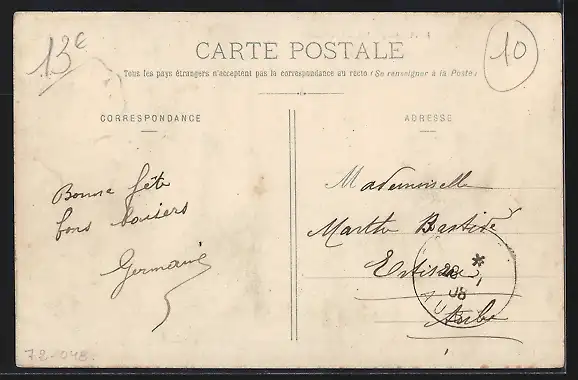 13c
10
CARTE POSTALE
Tous les pays étrangers n'acceptent pas la correspondance au recto (Se renseigner à la Poste)
CORRESPONDANCE
ADRESSE
Bonne fête
bons baisers
Germaine
Mademoiselle
Marthe Bastide
28
08
Aube
72-048.